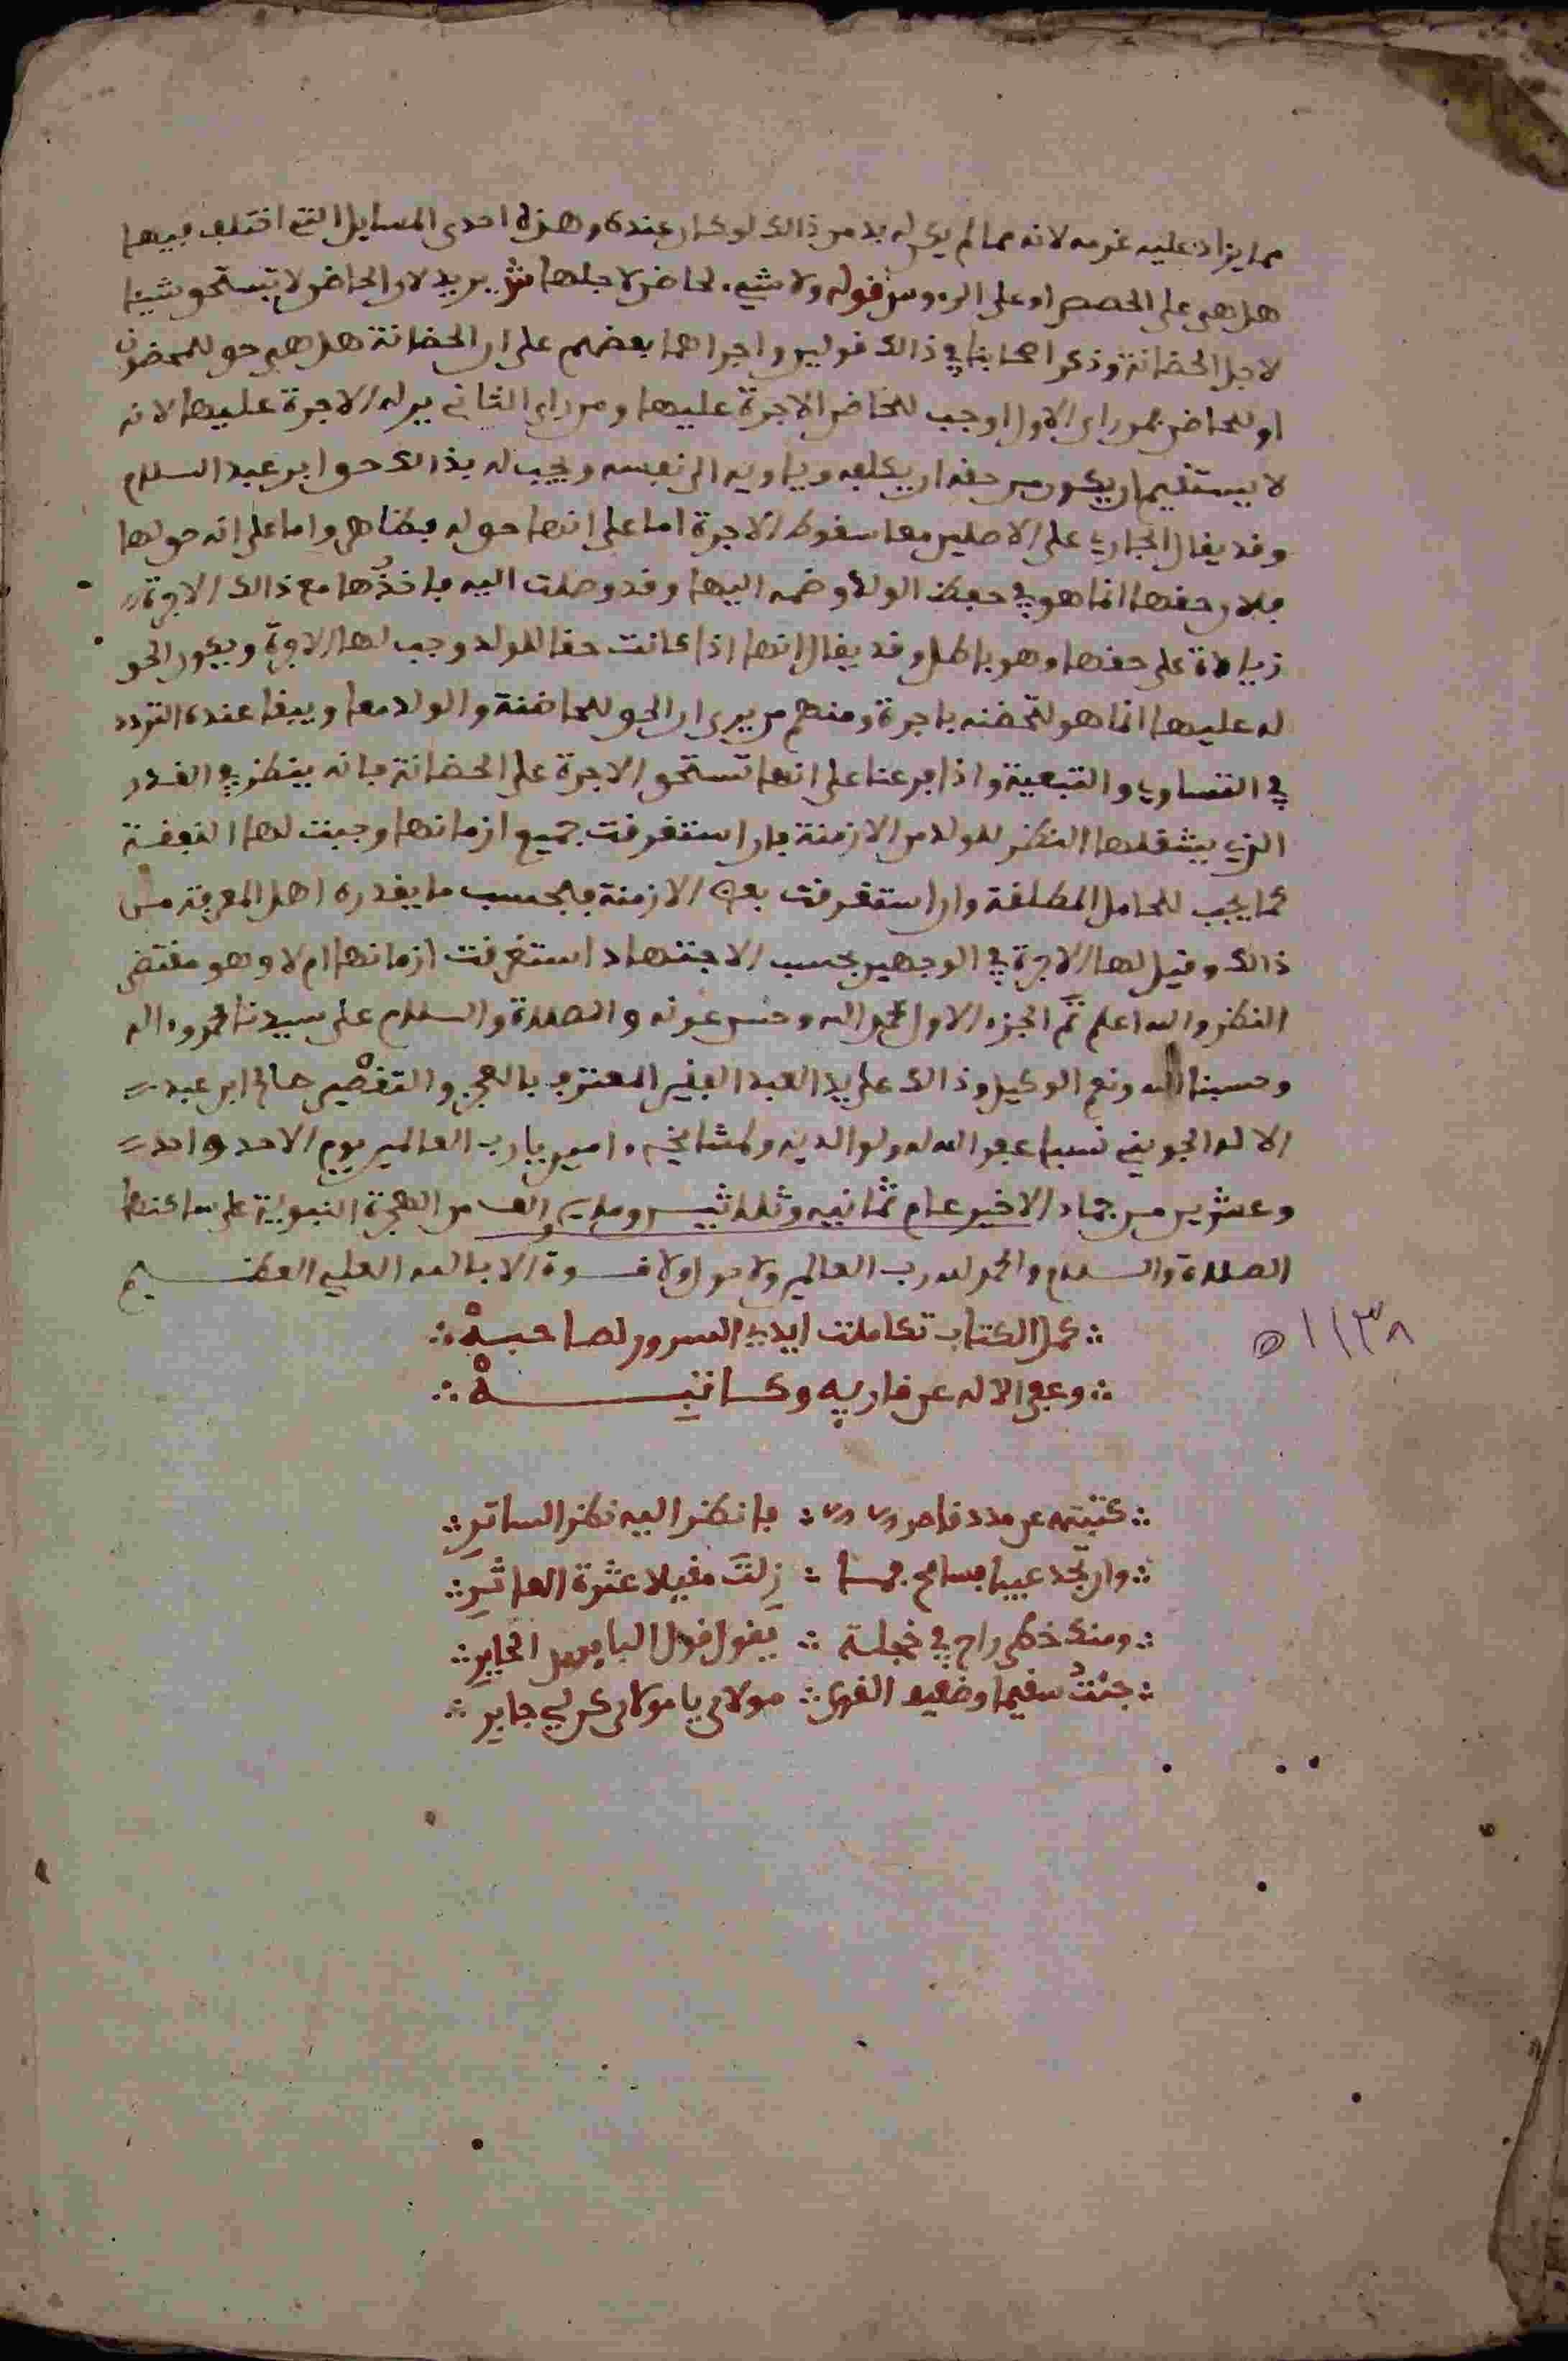 مما يزاد عليه غرمه لانه مما لم يكن له بد من ذالك لو كان عنده وهذه احدى المسايل التي اختلف فيها
هل هي على الحصص او على الرءوس قوله ولا شيء لحاضن لاجلها ش يريد لان الحاضن لا تستحق شيئا
لاجل الحضانة وذكر اصحابنا في ذالك قولين واجراهما بعضهم على ان الحضانة هل هي حق للمحضون
او للحاضن فمن راى الاول اوجب للحاضن الاجرة عليها ومن راى الثاني لم ير له الاجرة عليها لانه
لا يستقيم ان يكون من حقه ان يكلفه وياويه الى نفسه ويجب له بذالك حق ابن عبد السلام
وقد يقال الجاري على الاصلين معا سقوط الاجرة اما على انها حق له فظاهر واما على انه حق لها
فلان حقها انما هو في حفظ الولد وضمه اليها وقد وصلت اليه فاخذها مع ذالك الاجرة
زيادة على حقها وهو باطل وقد يقال انها اذا كانت حقا للولد وجب لها الاجرة ويكون الحق
له عليها انما هو لتحضنه باجرة ومنهم من يرى ان الحق للحاضنة والولد معا ويبقا عنده التردد
في التساوي والتبعية واذا فرعنا على انها تستحق الاجرة على الحضانة فانه ينظر في القدر
الذي يشغلها النظر للولد من الازمنة فان استغرقت جميع ازمانها وجبت لها النفقة
كما يجب للحامل المطلقة وان استغرقت بعض الازمنة فبحسب ما يقدره اهل المعرفة من
ذالك وقيل لها الاجرة في الوجهين بحسب الاجتهاد استغرقت ازمانها ام لا وهو مقتضى
النظر والله اعلم تم الجزء الاول بحمد الله وحسن عونه والصلاة والسلام على سيدنا محمد واله
وحسبنا الله ونعم الوكيل وذالك على يد العبد الفقير المعترف بالعجز والتقصير صالح ابن عبد
الاله الجويني نسبا غفر الله له ولوالديه ولمشايخه امين يا رب العالمين يوم الاحد واحد
وعشرين من جماد الاخير عام ثمانيه وثلاثين ومايه والف من الهجرة النبوية على ساكنها
الصلاة والسلام والحمد لله رب العالمين ولا حول ولا قوة الا بالله العلي العظيم
١١٣٨
كمل الكتاب تكاملت ايدي السرور لصاحبه
وعفى الاله عن قاريه وكاتبه
كتبته عن مدد قاصر فانظر اليه نظر الساتر
وان تجد عيبا فسامح زلت مقيلا عثرة العاثر
ومنك خطي راح في خجلة يقول قول البايس الحاير
جئت سقيما وضعيف القوى مولاي يا مولاي كن لي جابر